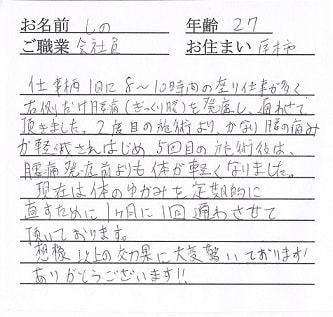 お名前 しの 年齢 27
ご職業 会社員 お住まい 厚木市
仕事柄1日に8〜10時間の座り仕事が多く
右側だけ腰痛(ぎっくり腰)を発症し、通わせて
頂きました。2度目の施術より、かなり腰の痛み
が軽減されはじめ、5回目の施術後は、
腰痛発症前よりも体が軽くなりました。
現在は体のゆがみを定期的に
直すために1ヶ月に1回通わせて
頂いております。
想像以上の効果に大変驚いております!
ありがとうございます!!